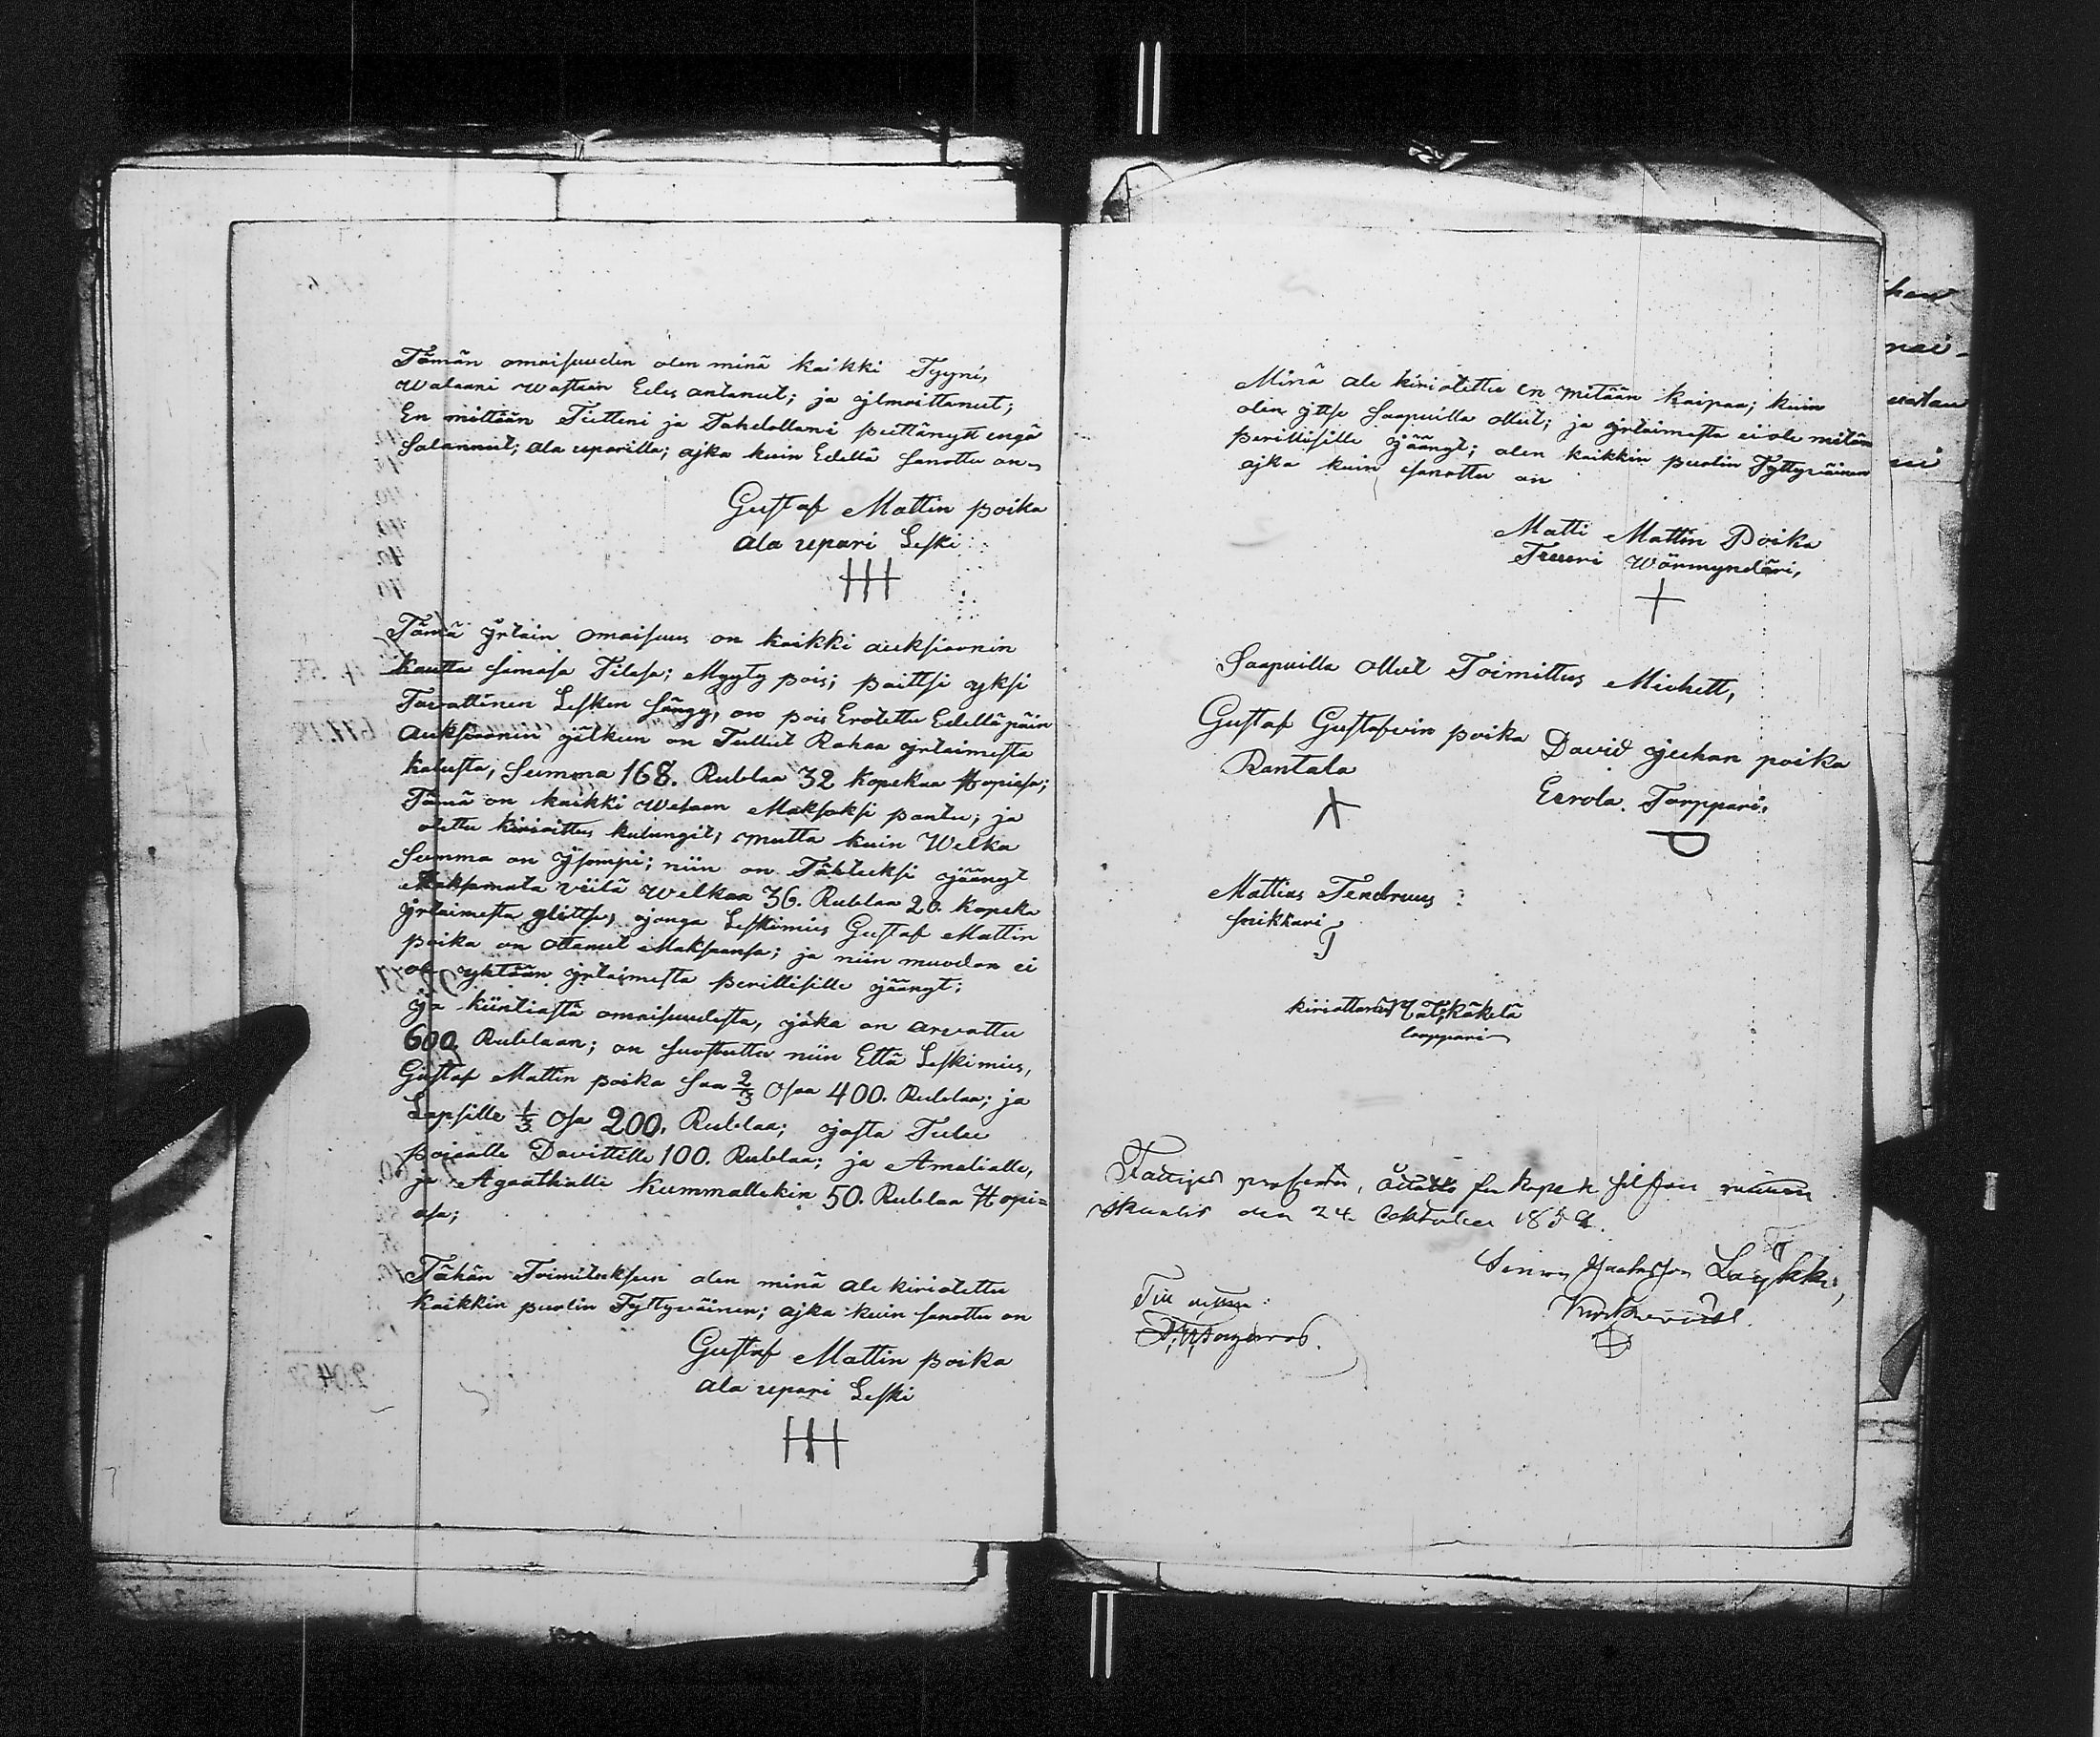 Tämän omaisuuden olen minä kaikki Tyyni,
Walaani wastaan Edes antanut; ja ylmoittanut;
En mittään Tietteni ja Tahdollani peittänytt engä
Salannut; ala uparilla; ajka kuin Edellä Sanottu on
Gustaf Mattin poika
ala upari Leski
Tämä yrtain omaisuus on kaikki auksioonin
kautta samasa Tilasa; Myyty pois; paittsi yksi
Tavattinen Lesken Sängy, on pois Erotettu Edelläpäin
auksioonin jälkun on Tullut Rahaa yrtaimesta
kalusta, Summa 168. Rublaa 32 kopekaa Hopiasa;
Tämä on kaikki Welaan Maksoksi pantu; ja
otettu kirioittus kulungit; mutta kuin Welka
Summa on ysompi; niin on Täbteeksi jäänyt
Maksamata Vielä Welkaa 36. Rublaa 20. kopeka
yrtaimesta ylittse, jonga Leskimies Gustaf Mattin
poika on ottanut Maksaansa; ja niin muodon ei
ole yhtään yrtaimesta perillisille jäänyt;
ja kiintiästä omaisuudesta, joka on arvattu
600. Rublaan; on suostuttu niin Että Leskimies,
Gustaf Mattin poika saa 2/3 Osaa 400. Rublaa; ja
Lapsille 1/3 Osa 200. Rublaa; josta Tulee
pojaalle Davittille 100. Rublaa; ja Amalialle,
ja Agaathalle kummallekin 50. Rublaa Hopi=
asa;
Tähän Toimituksen olen minä ale kiriotettu
kaikkin puolin Tyttyväinen; ajka kuin sanottu on
Gustaf Mattin poika
ala upari Leski
Minä ale kiriotettu en mitään kaipaa; kuin
olen ittse Saapuilla ollut; ja yrtaimesta ei ole mitän
perillisille jäänyt; olen kaikkin puolin Tyttyväinen
ajka kuin sanottu on
Matti Mattin Poika
Wörmynderi,
Saapuilla ollut Toimittus Miehett,
Gustaf Gustafvin poika
Rantala
David Juhan poika
Eerola. Torppari.
Mattias Tendruus
snikkari
kiriottanut Kåkelä
lamppari
Fattiges procenter, åttatio fem kopek silfver
den 24 Oktober